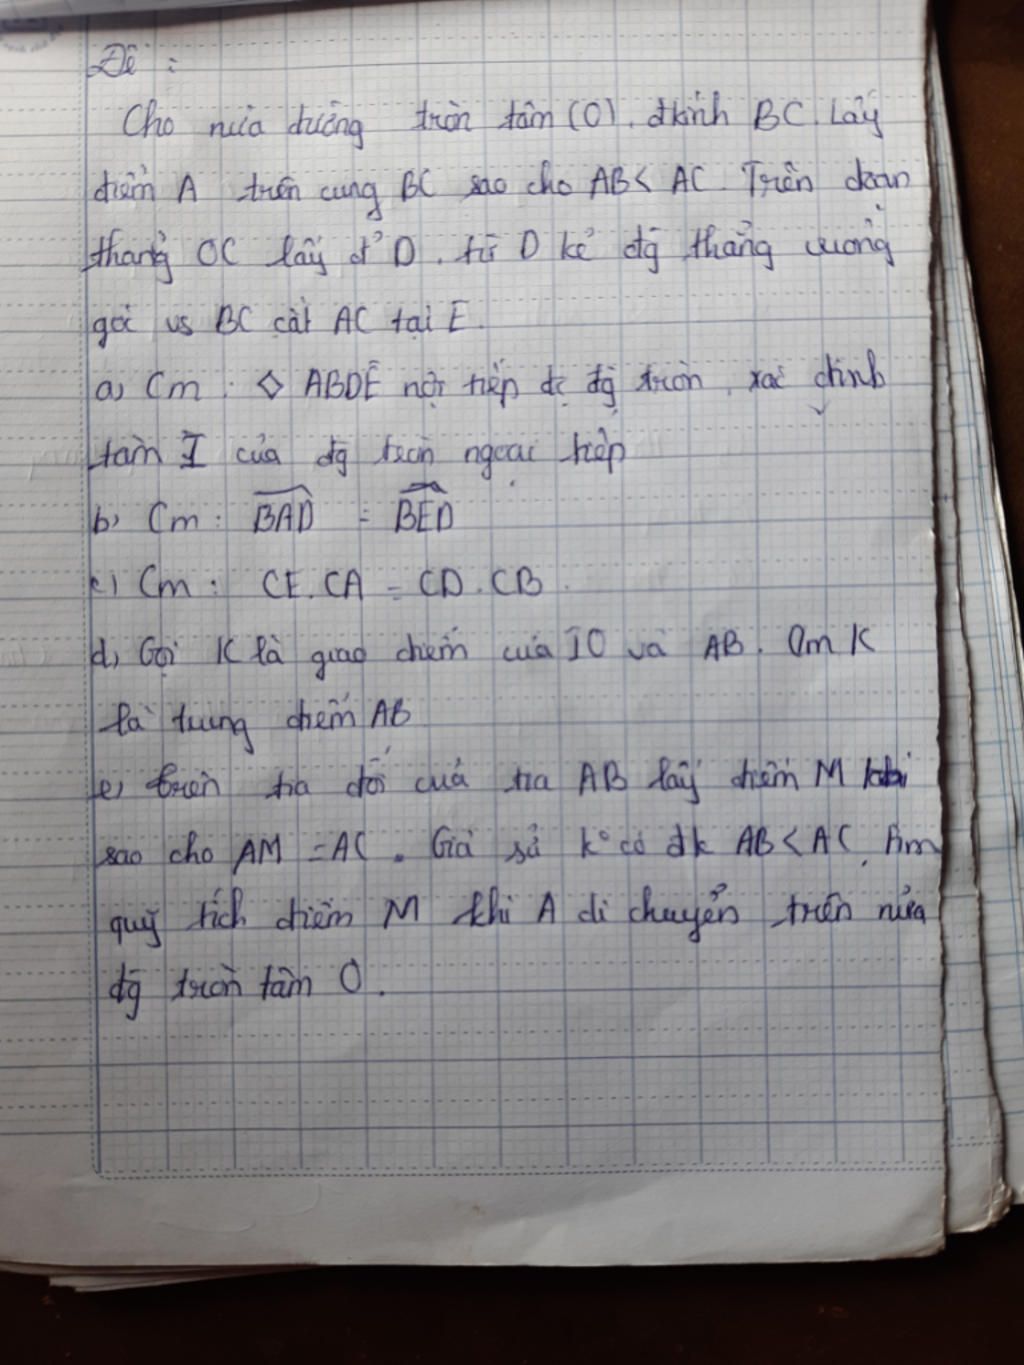 Đề :
Cho nửa đường tròn tâm (O), đkính BC. Lấy
điểm A trên cung BC sao cho AB < AC. Trên đoạn
thẳng OC lấy đ' D. từ D kẻ đg thẳng vuông
góc vs BC cắt AC tại E.
a) Cm : ◇ ABDE nội tiếp đc đg tròn, xác định
tâm I của đg tròn ngoại tiếp
b) Cm : BAD = BED
c) Cm : CE.CA = CD.CB.
d) Gọi K là giao điểm của IO và AB. Cm K
là trung điểm AB
e) trên tia đối của tia AB lấy điểm M
sao cho AM = AC. Giả sử k° có đk AB < AC,
quỹ tích điểm M khi A di chuyển trên nửa
đg tròn tâm O.